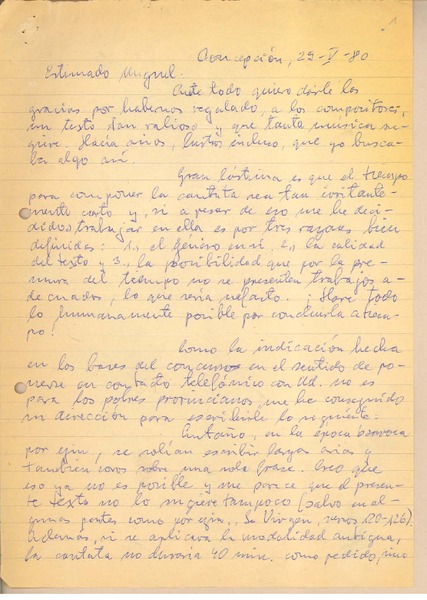 1
Concepción, 29-V-80
Estimado Miguel.
Ante todo quiero darle las
gracias por habernos regalado, a los compositores,
un texto tan valioso y que tanta música su-
giere. Hacía años, lustros incluso, que yo busca-
ba algo así.
Gran lástima es que el tiempo
para componer la cantata sea tan irritante-
mente corto y, si a pesar de eso me he deci-
dido a trabajar en ella es por tres razones bien
definidas: 1., el género en sí, 2., la calidad
del texto y 3., la posibilidad que por la pre-
mura del tiempo no se presenten trabajos a-
decuados, lo que sería nefasto. ¡Haré todo
lo humanamente posible por concluirla a tiem-
po!
Como la indicación hecha
en las bases del concurso en el sentido de po-
nerse en contacto telefónico con Ud. no es
para los pobres provincianos, me he conseguido
su dirección para escribirle lo siguiente.
Antaño, en la época barroca
por ejm., se solían escribir largas arias y
también coros sobre una sola frase. Creo que
eso ya no es posible y me parece que el presen-
te texto no lo sugiere tampoco (salvo en al-
gunas partes como por ejm., Se Virgen, versos 120-126).
Además, si se aplicara la modalidad antigua,
la cantata no duraría 40 min. como pedido, sino